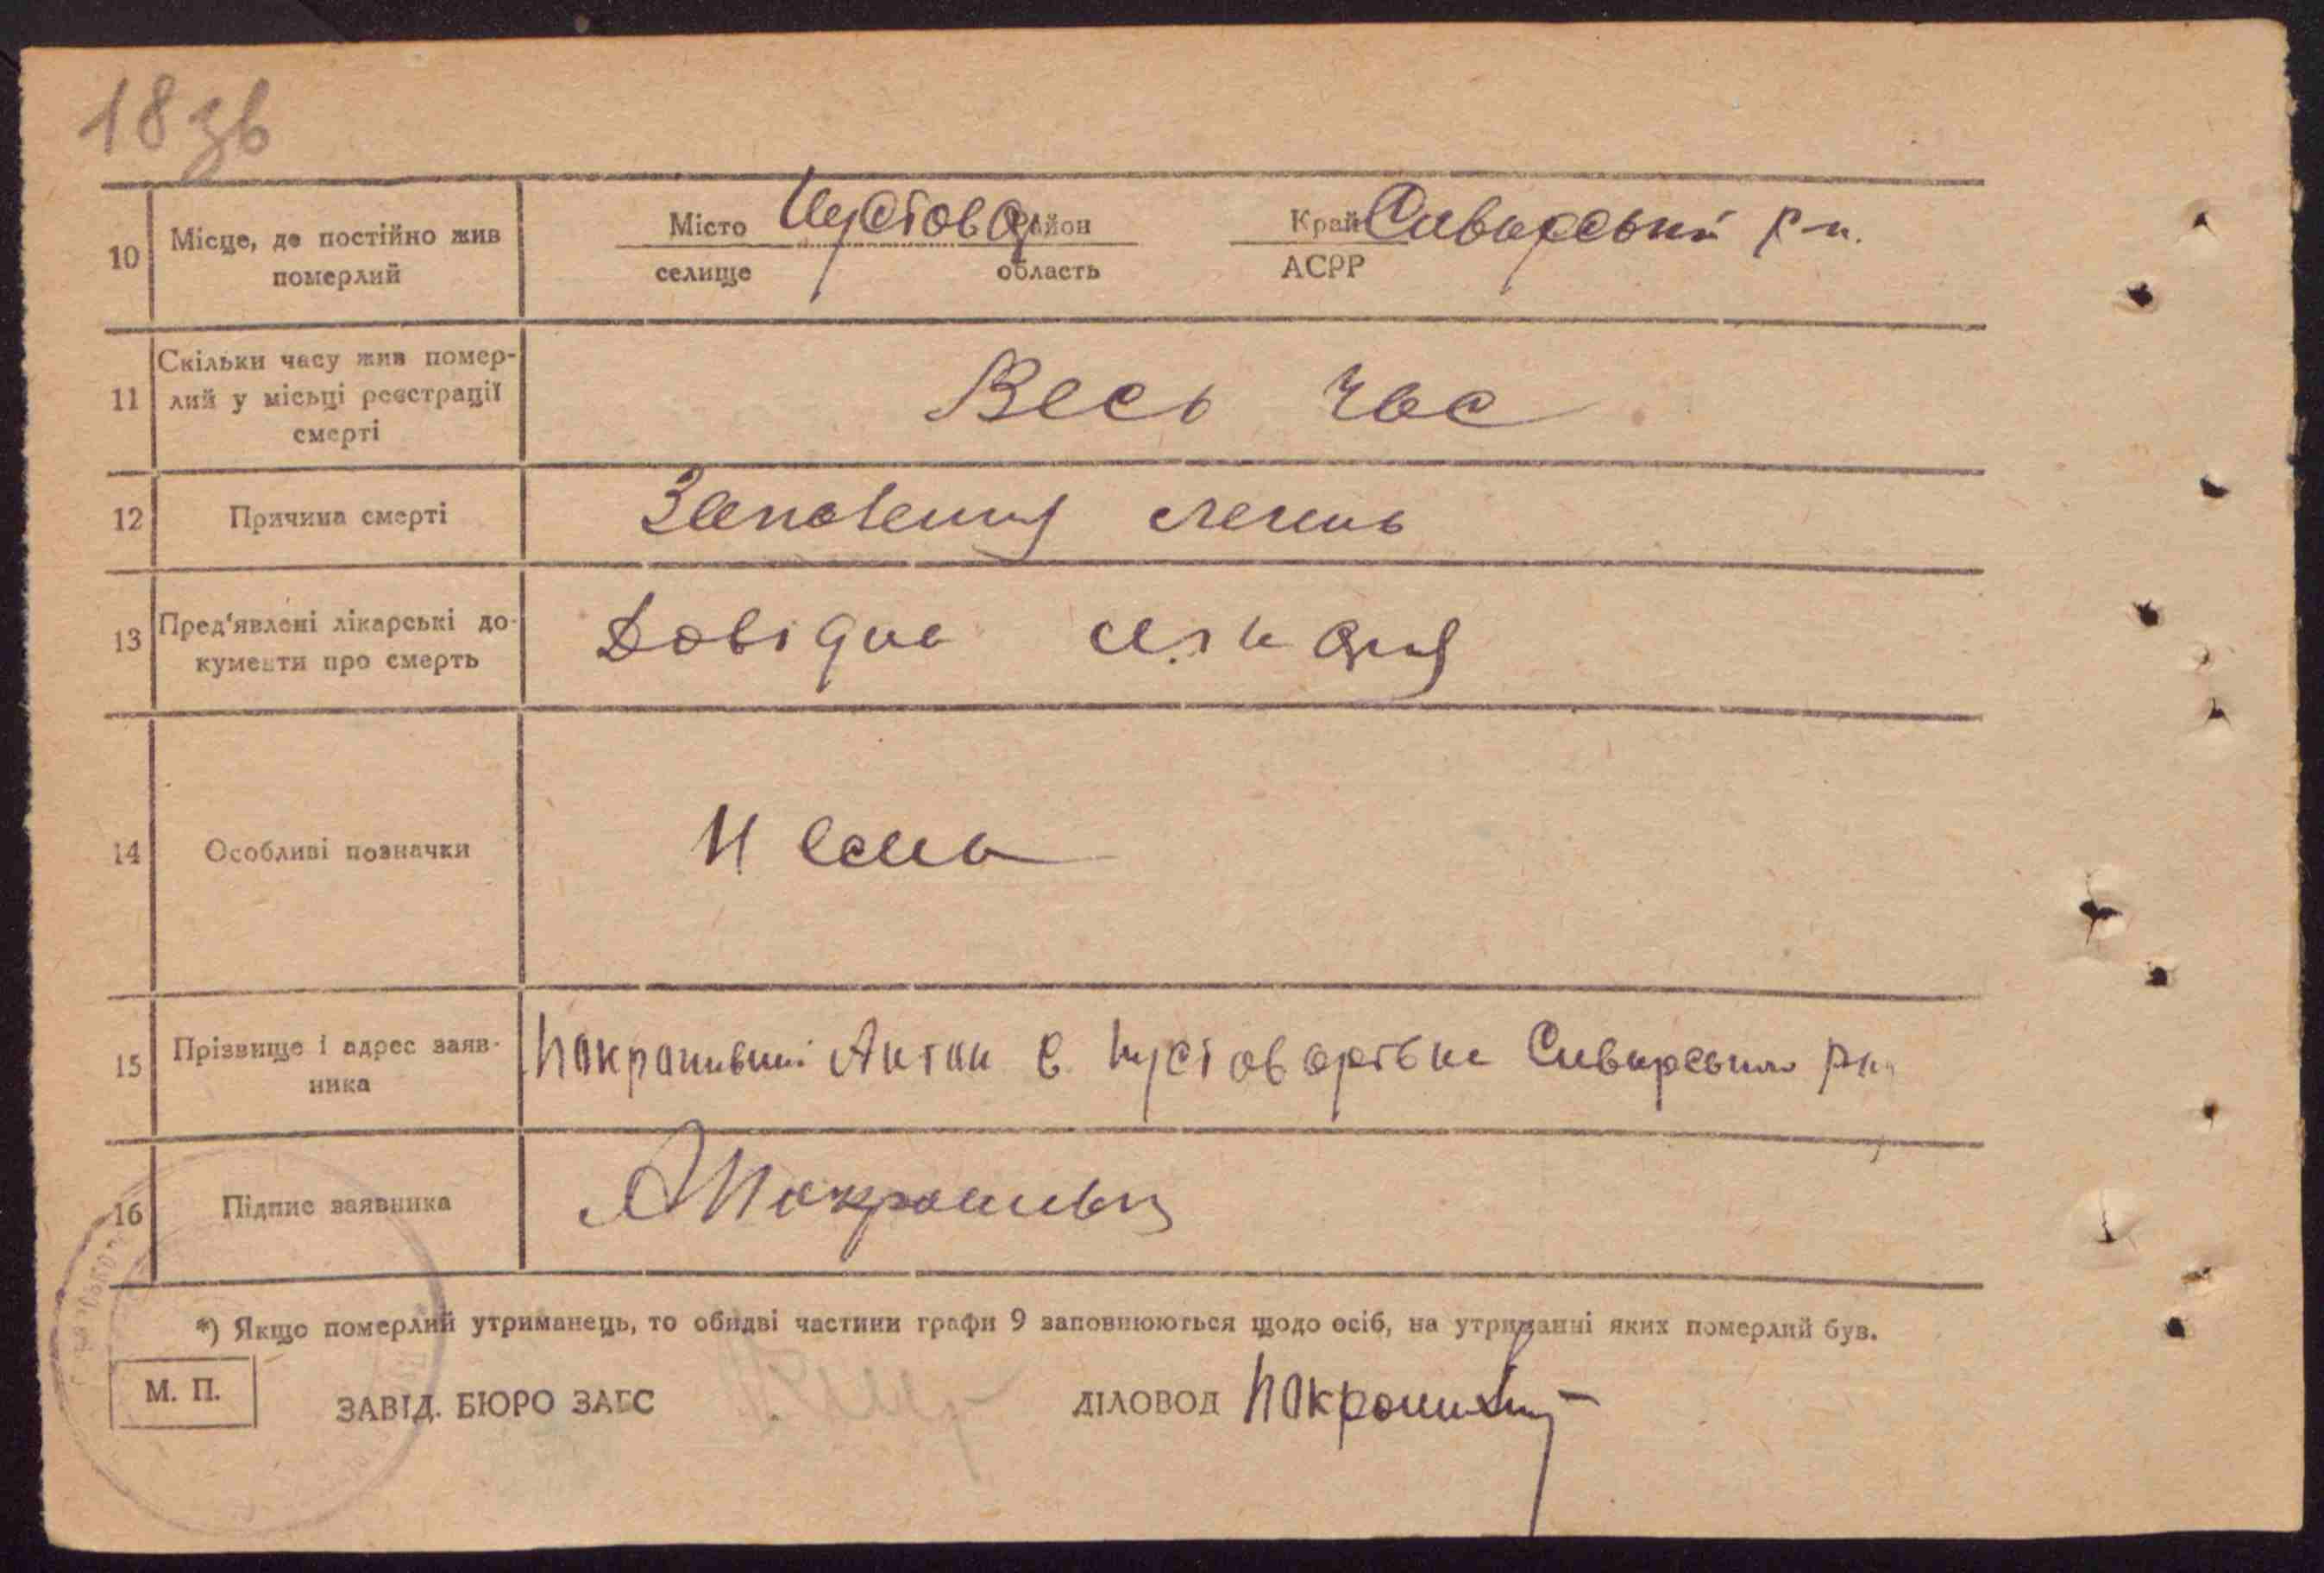 18 зв
10 Місце, де постійно жив померлий
Місто Пустова район Край Сиварський р-н.
селище область АСРР
11 Скільки часу жив помер-
лий у місьці реєстрації
смерті
Весь час
12 Причина смерті
Запалення легень
13 Пред'явлені лікарські до-
кументи про смерть
Довідка
14 Особливі позначки
Нема
15 Прізвище і адрес заяв-
ника
Антон с. Сиварського р-н
16 Підпис заявника
*) Якщо померлий утриманець, то обидві частини графи 9 заповнюються щодо осіб, на утриманні яких померлий був.
М. П.
ЗАВІД. БЮРО ЗАГС ДІЛОВОД